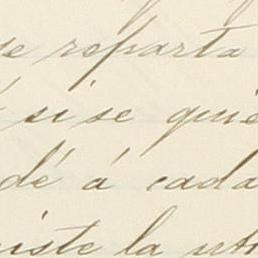 se reparta
si se quie
dé á cada
iste la uti